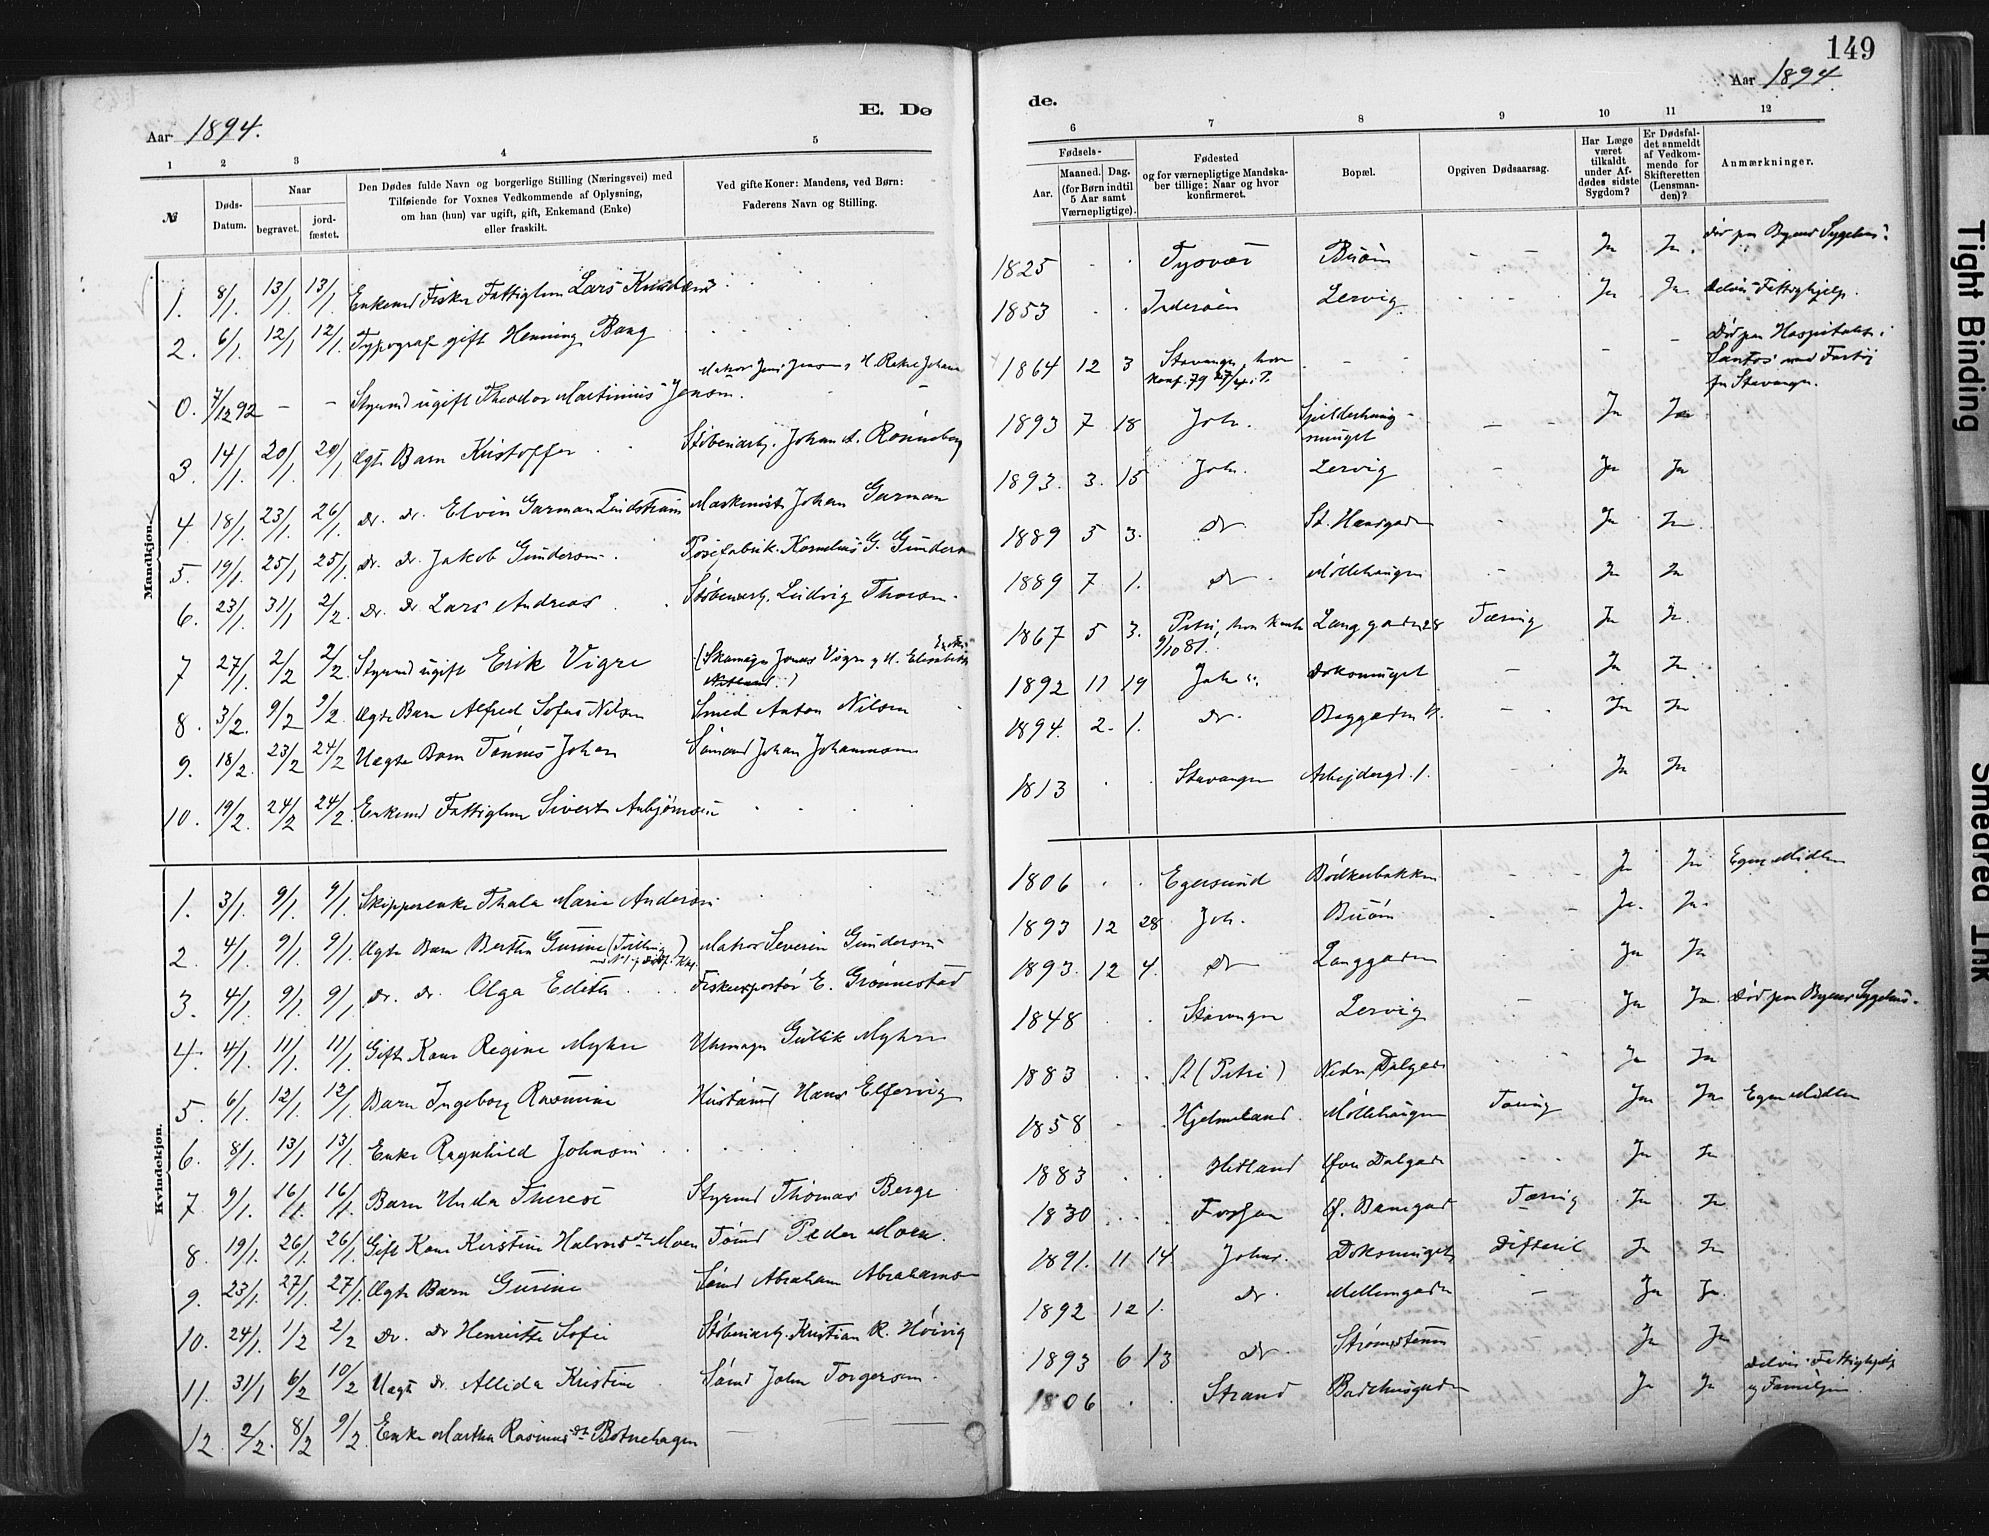 149
Aar 1894.
E. Dø
de.
Aar 1894
1 2 3 4 5
6 7 8 9 10 11 12
№
Døds-Datum.
Naar
begravet.
jord-fæstet.
Den Dødes fulde Navn og borgerlige Stilling (Næringsvei) med
Tilføiende for Voxnes Vedkommende af Oplysning,
om han (hun) var ugift, gift, Enkemand (Enke)
eller fraskilt.
Ved gifte Koner: Mandens, ved Børn:
Faderens Navn og Stilling.
Fødsels-
Aar.
Maaned. Dag.
(for Børn indtil
5 Aar samt
Værnepligtige).
Fødested
og for værnepligtige Mandska-
ber tillige: Naar og hvor
konfirmeret.
Bopæl.
Opgiven Dødsaarsag.
Har Læge
været
tilkaldt
under Af-
dødes sidste
Sygdom?
Er Dødsfal-
det anmeldt
af Vedkom-
mende for
Skifteretten
(Lensman-
den)?
Anmærkninger.
Mandkjøn.
1. 8/1. 13/1 13/1. Enkemd Fisker Fattiglem Lars 1825 Tysvær Buøen Ja Ja. død paa Byens Sygehus.
2. 6/1. 12/1 12/1. Typograf gift Henning Bang 1853 Inderøen Lervig Ja Ja delvis Fattighjelp.
0. 7/12 92 - - Styrmd ugift Theodor Martinius Jensen. Matros Jens Jensen 1864 12 3 Stavanger, konf. 79 27/4 i P. Død paa Hospitalet i Santos med Fartøi fra Stavanger.
3. 14/1. 20/1 20/1 Ægte Barn Kristoffer Støberiarb. Johan A. Rønneberg 1893 7 18 Joh. Spilderhaug-smuget Ja Ja
4 18/1. 23/1. 26/1. Do. Do. Elvin Garman Lindstrøm Maskinist Johan Garman 1893. 3. 15 Joh. Lervig Ja Ja
5. 19/1. 25/1 25/1. Do. Do. Jakob Gundersen Posefabrik. Kornelius G. Gundersen 1889 5 3. Do St. Hansgaden Ja Ja
6. 23/1. 31/1 2/2. Do. Do Lars Andreas Støberiarb. Ludvig Thorsen. 1889 7. 1. Do Møllehaugen Ja Ja
7 27/1. 2/2 2/2 Styrmd ugift Erik Vigre (Skomager Jonas Vigre og H. Elisabeth 1867 5 3. Petri, 9/10 81. Langgaden 28 Tæring Ja Ja.
8. 3/2. 9/2 9/2. Ægte Barn Alfred Sofus Nilsen Smed Anton Nilsen 1892 11 19 Joh. Doksmuget Ja Ja
9. 18/2. 23/2 24/2 Uægte Barn Tønnes Johan Sømand Johan Johannesen 1894. 2. 1. Do. Baggaden Ja Ja
10. 19/2. 24/2 24/2. Enkemd Fattiglem Sivert Asbjørnsen 1813 Stavanger Arbejdergd. 1. Ja Ja
Kvindekjøn.
1. 3/1. 9/1. 9/1. Skipperenke Thala Marie Andersen 1806 Egersund Bødkerbakken Ja Ja Egne Midler
2. 4/1. 9/1. 9/1. Ægte Barn Bertha Gurine Matros Severin Gundersen 1893 12 28 Joh. Buøen Ja. Ja.
3. 4/1. 9/1. 9/1 Do. Do. Olga Edita Fiskexportør E. Grønnestad 1893. 12 4. Do Langgaden Ja Ja
4. 4/1. 11/1. 11/1. Gift Kone Regine Myhre Uhrmager Gullik Myhre 1848 Stavanger Lervig Ja Ja Død paa Byens Sygehus.
5. 6/1. 12/1. 12/1 Barn Ingeborg Rasmine Hustømd Hans Elfarvig 1883 (Petri) Nedre Dalgade Ja Ja
6. 8/1. 13/1 13/1. Enke Ragnhild Johnsen 1858 Hjelmeland. Møllehaugen Tæring Ja Ja Egne Midler
7. 9/1. 16/1. 16/1. Barn Unda Therese Styrmd Thomas Berge 1883 Hetland Øvre Dalgade Ja Ja
8. 19/1. 26/1. 26/1. Gift Kone Kerstine Halvorsdt Moen Tømd Peder Moen. 1830 Fossan Ø. Banegad Tæring Ja Ja
9. 23/1. 27/1. 27/1. Ægte Barn Gurine Sømd Abraham Abrahamsen 1891. 11 14. Johs. Doksmuget Difterit Ja Ja
10. 24/1. 1/2 2/2 Do. Do Henriette Sofie Støberiarb. Kristian R. Høivig 1892 12 1. Do. Mellemgaden Ja Ja.
11. 31/1 6/2 10/2 Uægte Do. Allida Kristine Sømd John Torgersen. 1893 6 13 Do. Strømsteen Ja Ja
12 2/2. 8/2 9/2. Enke Martha Rasmusdt Botnehagen 1806 Strand Badehusgaden Ja Ja Delvis Fattighjelp og Familien.
Tight Binding
Smeared Ink